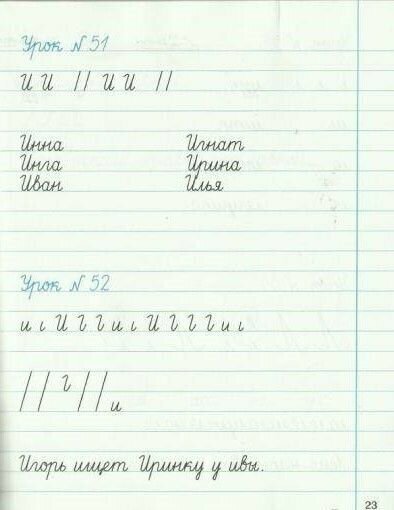 Урок № 51
И И // И И //
Инна Игнат
Инга Ирина
Иван Илья
Урок № 52
и ι И г г и ι И г г г и ι
// г // и
Игорь ищет Иринку у ивы.
23